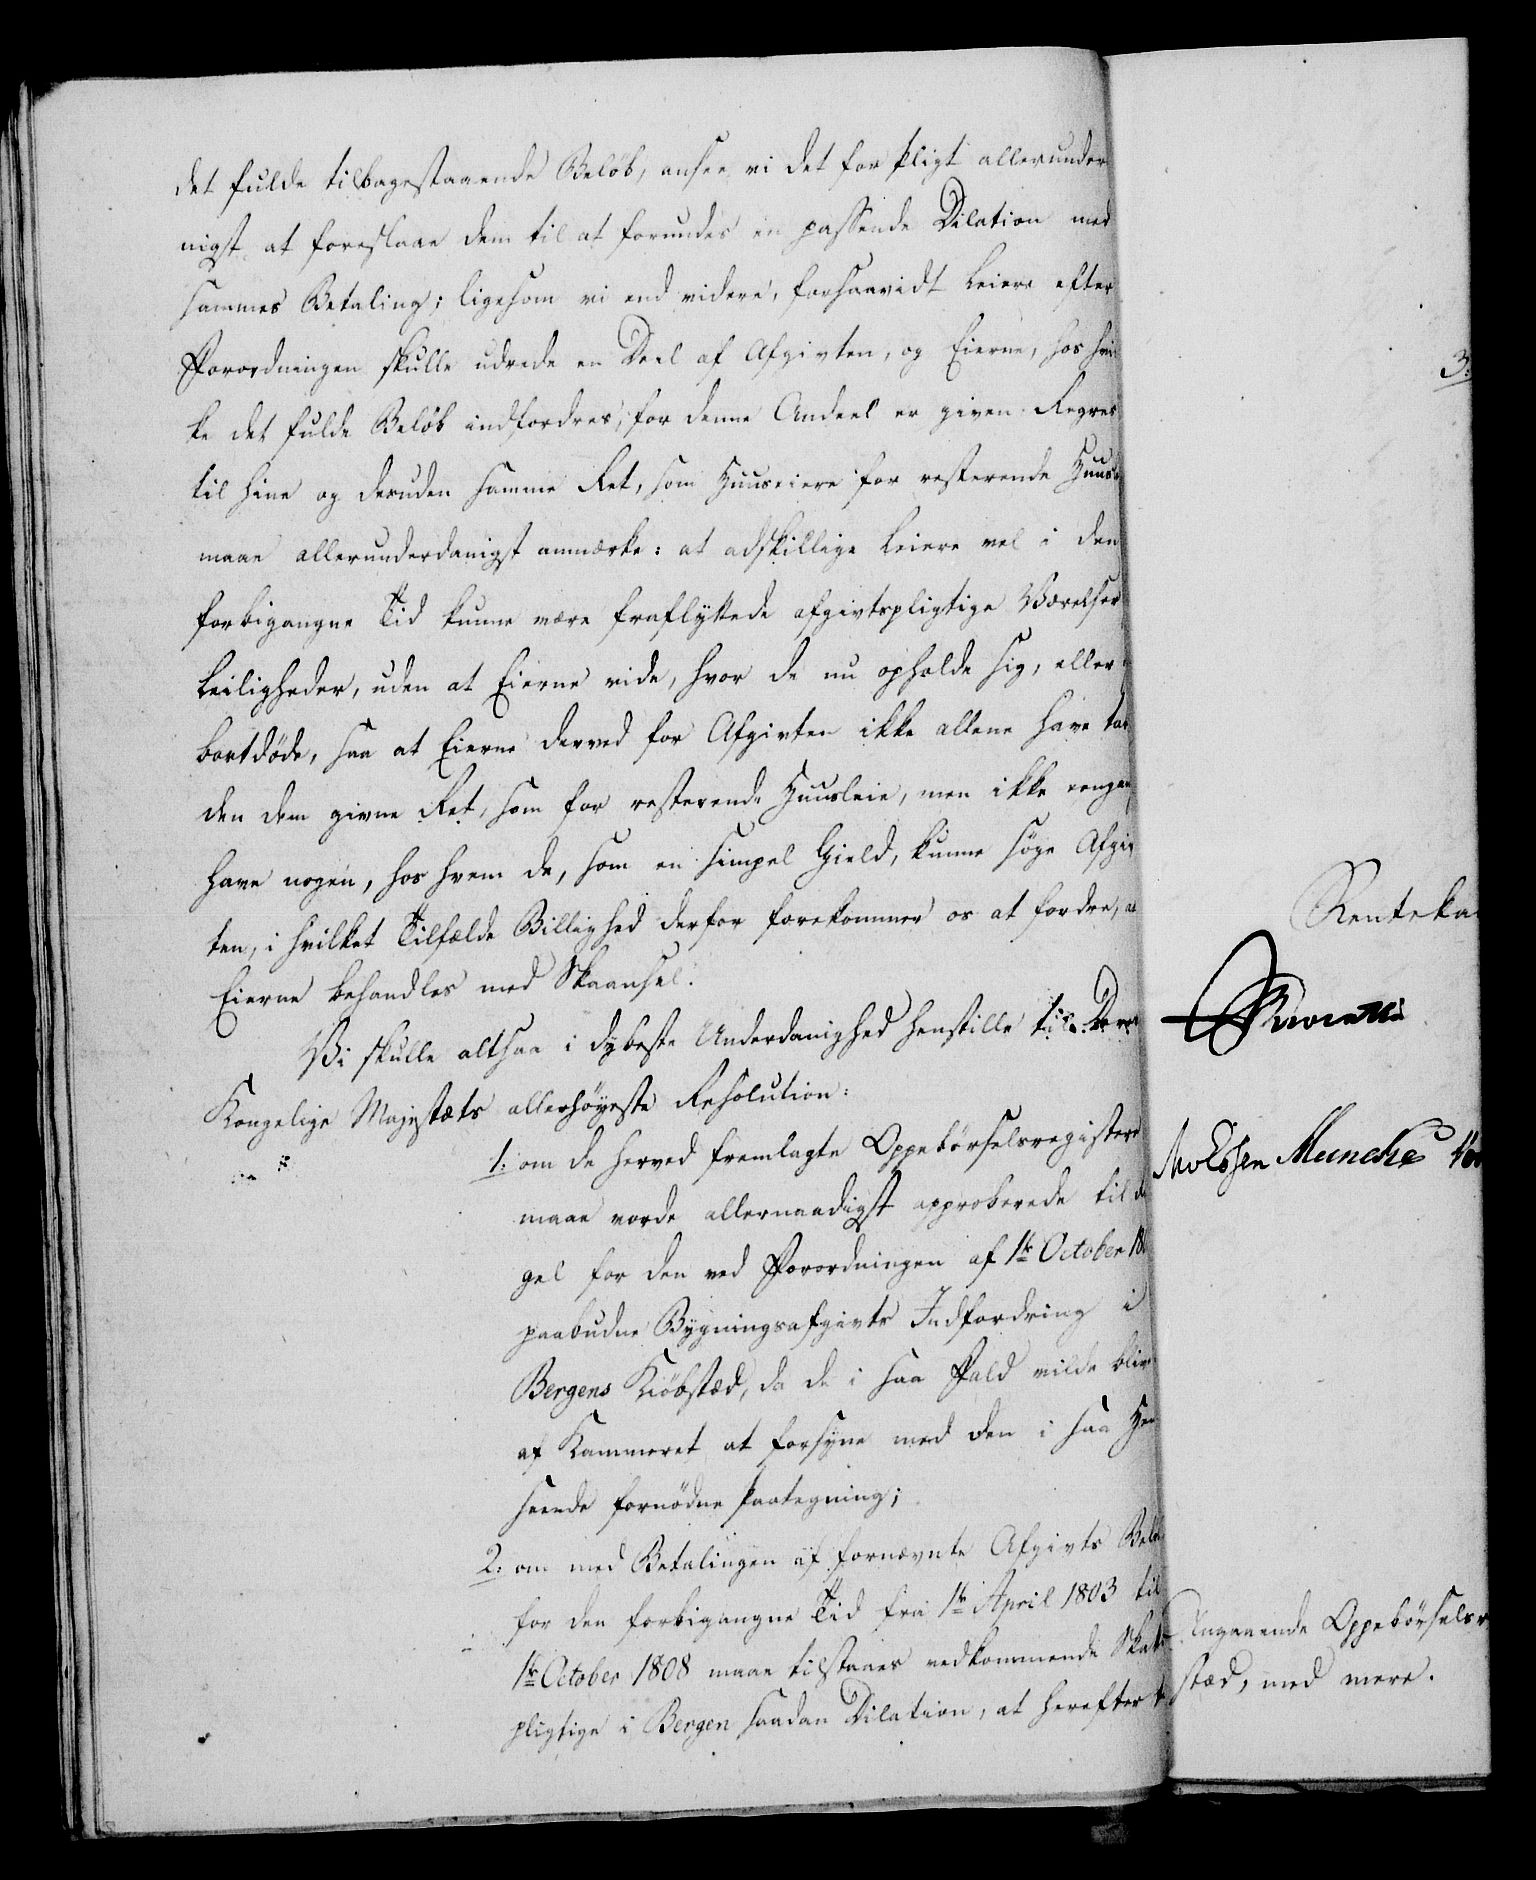 det fulde tilbagestaaende Beløb, ansee vi det for Pligt allerunder
nigst at foreslaae dem til at forundes en passende Dilation med
sammes Betaling; ligesom vi end videre, forsaavidt Leiere efter
Forordningen skulle udrede en Deel af Afgivten, og Eierne, hos hvil
ke det fulde Beløb indfordres, for denne Andeel er given Regres
til hine og desuden samme Ret, som Huuseiere for resterende Huusl
maae allerunderdanigst anmærke: at adskillige Leiere vel i den
forbigangne Tid kunne være fraflyttede afgivtspligtige Værelser
Leiligheder, uden at Eierne vide, hvor de nu opholde sig, eller
bortdøde, saa at Eierne derved for Afgivten ikke allene have tab
den dem givne Ret, som for resterende Huusleie, men ikke engang
have nogen, hos hvem de, som en simpel Gield, kunne søge Afgiv
ten, i hvilket Tilfælde Billighed derfor forekommer os at fordre, at
Eierne behandles med Skaansel.
Vi skulle altsaa i dybeste Underdanighed henstille til Deres
Kongelige Majestæts allerhøyeste Resolution:
1. om de herved fremlagte Oppebørselsregistere
maae vorde allernaadigst approberede til
gel for den ved Forordningen af 1te October 18
paabudne Bygningsafgivts Indfordring i
Bergens Kiøbstæd, da de i saa Fald vilde blive
af Kammeret at forsyne med den i saa Hen
seende fornødne Paategning;
2. om med Betalingen af fornævnte Afgivts Beløb
for den forbigangne Tid fra 1te April 1803 til
1te October 1808 maae tilstaaes vedkommende Skat
pligtige i Bergen saadan Dilation, at herefter
3.
Renteka
Munche
Angaaende Oppebørselsr
stæd, med mere.